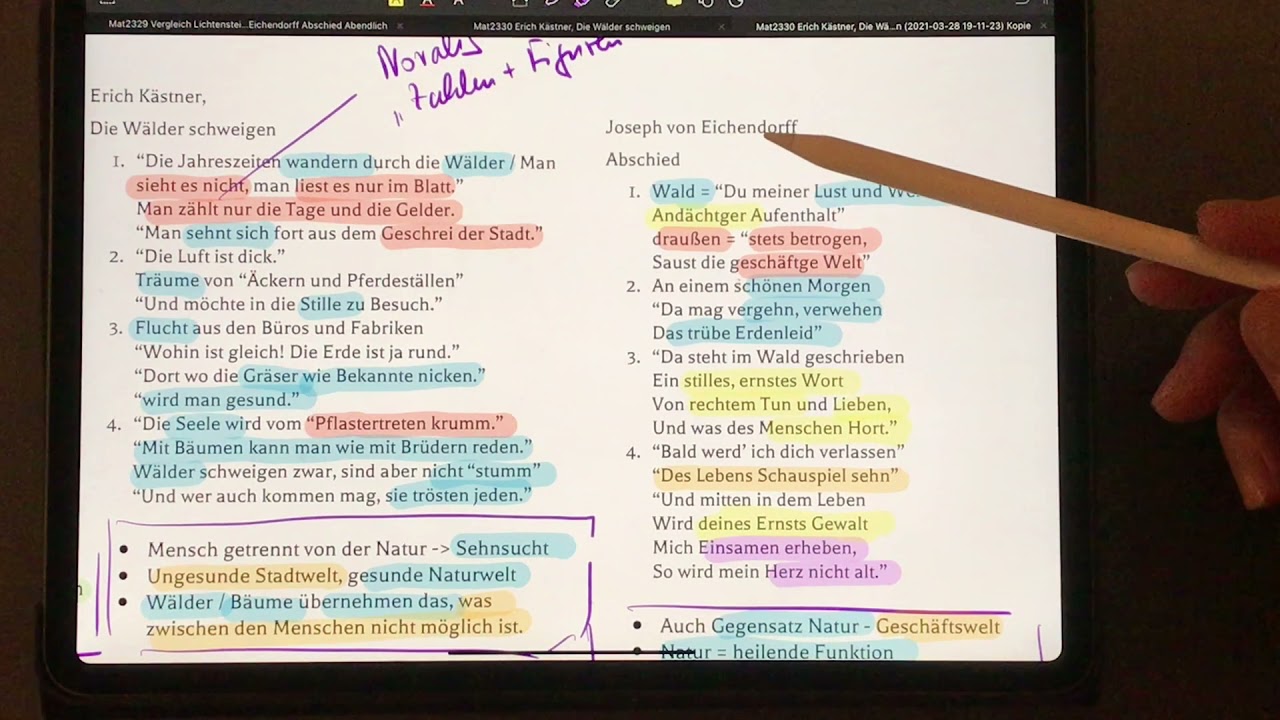 Mat2329 Vergleich Lichtenstei...Eichendorff Abschied Abendlich
Mat2330 Erich Kästner, Die Wälder schweigen
Mat2330 Erich Kästner, Die Wä...n (2021-03-28 19-11-23) Kopie
Novalis
"Zahlen + Figuren
Erich Kästner,
Die Wälder schweigen
1. "Die Jahreszeiten wandern durch die Wälder / Man
sieht es nicht, man liest es nur im Blatt."
Man zählt nur die Tage und die Gelder.
"Man sehnt sich fort aus dem Geschrei der Stadt."
2. "Die Luft ist dick."
Träume von "Äckern und Pferdeställen"
"Und möchte in die Stille zu Besuch."
3. Flucht aus den Büros und Fabriken
"Wohin ist gleich! Die Erde ist ja rund."
"Dort wo die Gräser wie Bekannte nicken."
"wird man gesund."
4. "Die Seele wird vom "Pflastertreten krumm."
"Mit Bäumen kann man wie mit Brüdern reden."
Wälder schweigen zwar, sind aber nicht "stumm"
"Und wer auch kommen mag, sie trösten jeden."
• Mensch getrennt von der Natur -> Sehnsucht
• Ungesunde Stadtwelt, gesunde Naturwelt
• Wälder / Bäume übernehmen das, was
zwischen den Menschen nicht möglich ist.
Joseph von Eichendorff
Abschied
1. Wald = "Du meiner Lust und
Andächtger Aufenthalt"
draußen = "stets betrogen,
Saust die geschäftge Welt"
2. An einem schönen Morgen
"Da mag vergehn, verwehen
Das trübe Erdenleid"
3. "Da steht im Wald geschrieben
Ein stilles, ernstes Wort
Von rechtem Tun und Lieben,
Und was des Menschen Hort."
4. "Bald werd' ich dich verlassen"
"Des Lebens Schauspiel sehn"
"Und mitten in dem Leben
Wird deines Ernsts Gewalt
Mich Einsamen erheben,
So wird mein Herz nicht alt."
• Auch Gegensatz Natur - Geschäftswelt
• Natur = heilende Funktion